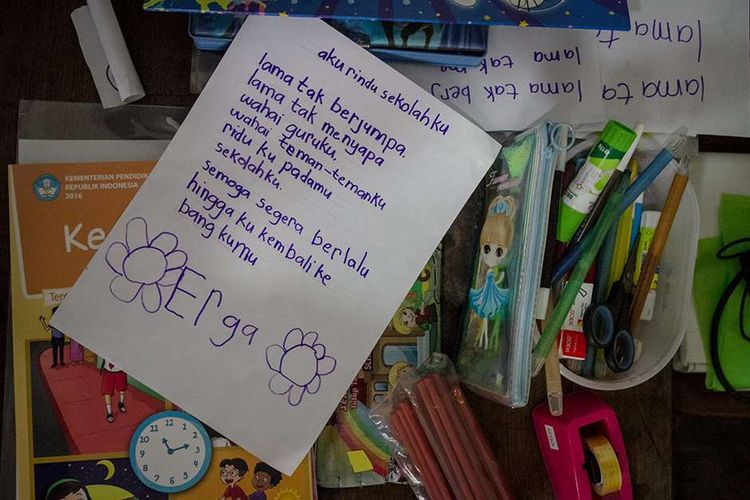 aku rindu sekolahku
lama tak berjumpa.
lama tak menyapa
wahai guruku,
wahai teman-temanku
ridu ku padamu
sekolahku.
semoga segera berlalu
hingga ku kembali ke
bang kumu
Erga
lama ta
lama tak
lama tak berj
lama ta
KEMENTERIAN PENDIDIK
REPUBLIK INDONESIA
2016
Ke
Te